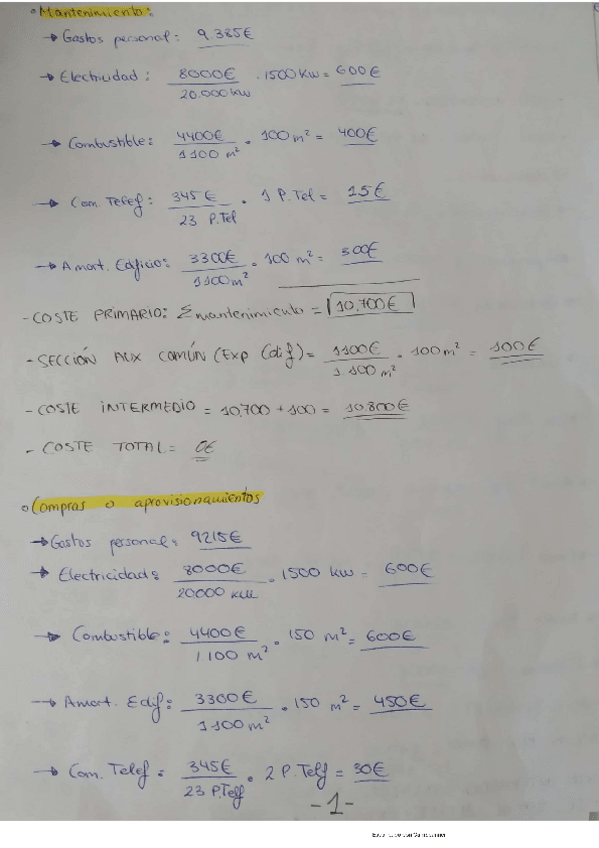 ◦ Mantenimiento:
→ Gastos personal: 9.385€
→ Electricidad: 8000€ / 20.000 kW · 1500 kW = 600€
→ Combustible: 4400€ / 1100 m² · 100 m² = 400€
→ Com. Telef: 345€ / 23 P.Tel · 1 P.Tel = 15€
→ Amort. Edificio: 3300€ / 1100 m² · 100 m² = 300€
- COSTE PRIMARIO: Σ mantenimiento = 10.700€
- SECCIÓN AUX COMÚN (Exp Edif) = 1100€ / 1100 m² · 100 m² = 100€
- COSTE INTERMEDIO = 10.700 + 100 = 10.800€
- COSTE TOTAL = 0€
◦ Compras o aprovisionamientos
→ Gastos personal: 9215€
→ Electricidad: 8000€ / 20000 kW · 1500 kW = 600€
→ Combustible: 4400€ / 1100 m² · 150 m² = 600€
→ Amort. Edif: 3300€ / 1100 m² · 150 m² = 450€
→ Com. Telef: 345€ / 23 P.Telf · 2 P.Telf = 30€
-1-